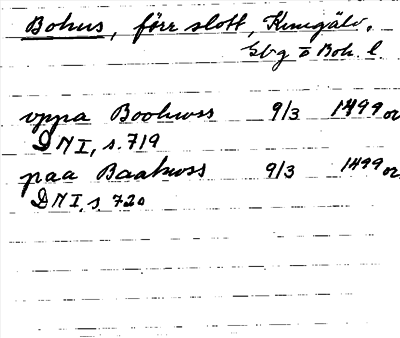 Bohus, förr slott, Kungälv.
Gbg o Boh. l.
uppa Boohwss 9/3 1499 or
DN I, s. 719
paa Baahwss 9/3 1499 or
DN I, s. 720